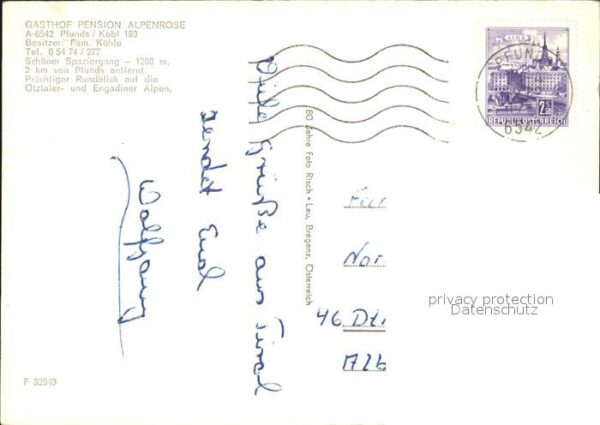 GASTHOF PENSION ALPENROSE
A-6542 Pfunds / Kobl 189
Besitzer: Fam. Köhle
Tel. 0 54 74 / 277
Schöner Spaziergang – 1200 m,
2 km von Pfunds entfernt.
Prächtiger Rundblick auf die
Ötztaler- und Engadiner Alpen.
Viele Grüße aus Tirol
sendet Euch
Wolfgang
60 Jahre Foto Risch-Lau, Bregenz, Österreich
LINZ
2.50
REPUBLIK ÖSTERREICH
PFUN
6542
Nor
46 Dt
privacy protection
Datenschutz
F 32549